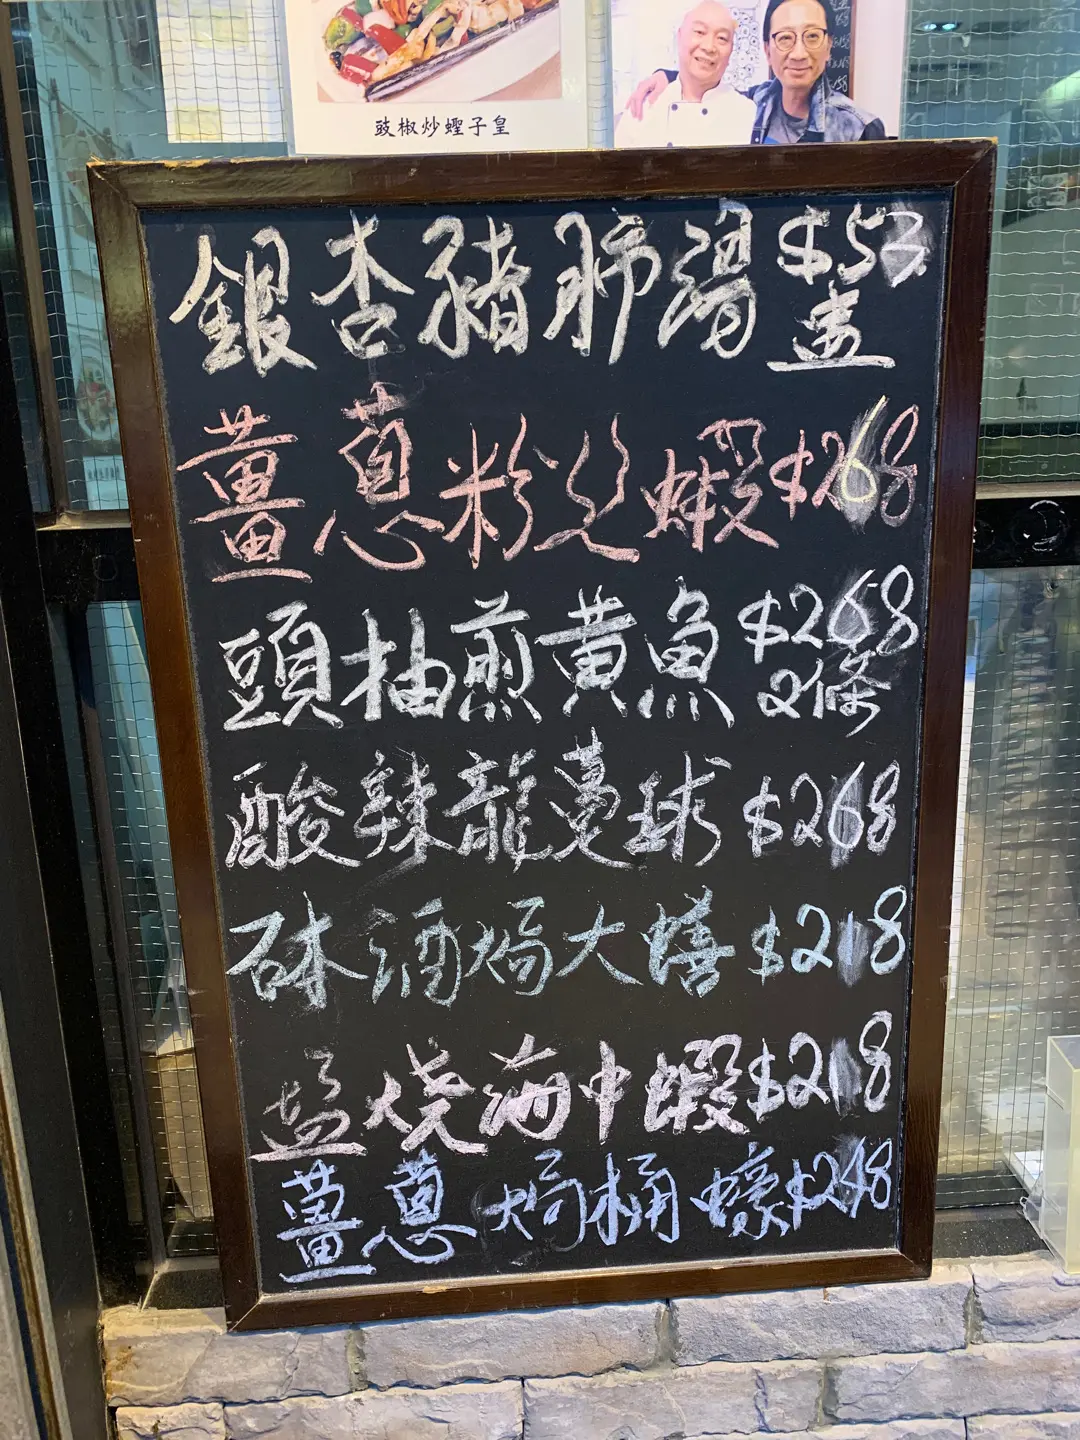 豉椒炒蟶子皇
銀杏豬肺湯 $53
盅
薑蔥粉絲蝦 $268
頭抽煎黄魚 $268
2條
酸辣龍躉球 $268
砵酒焗大鱔 $218
塩燒海中蝦 $218
薑蔥焗桶蠔 $248